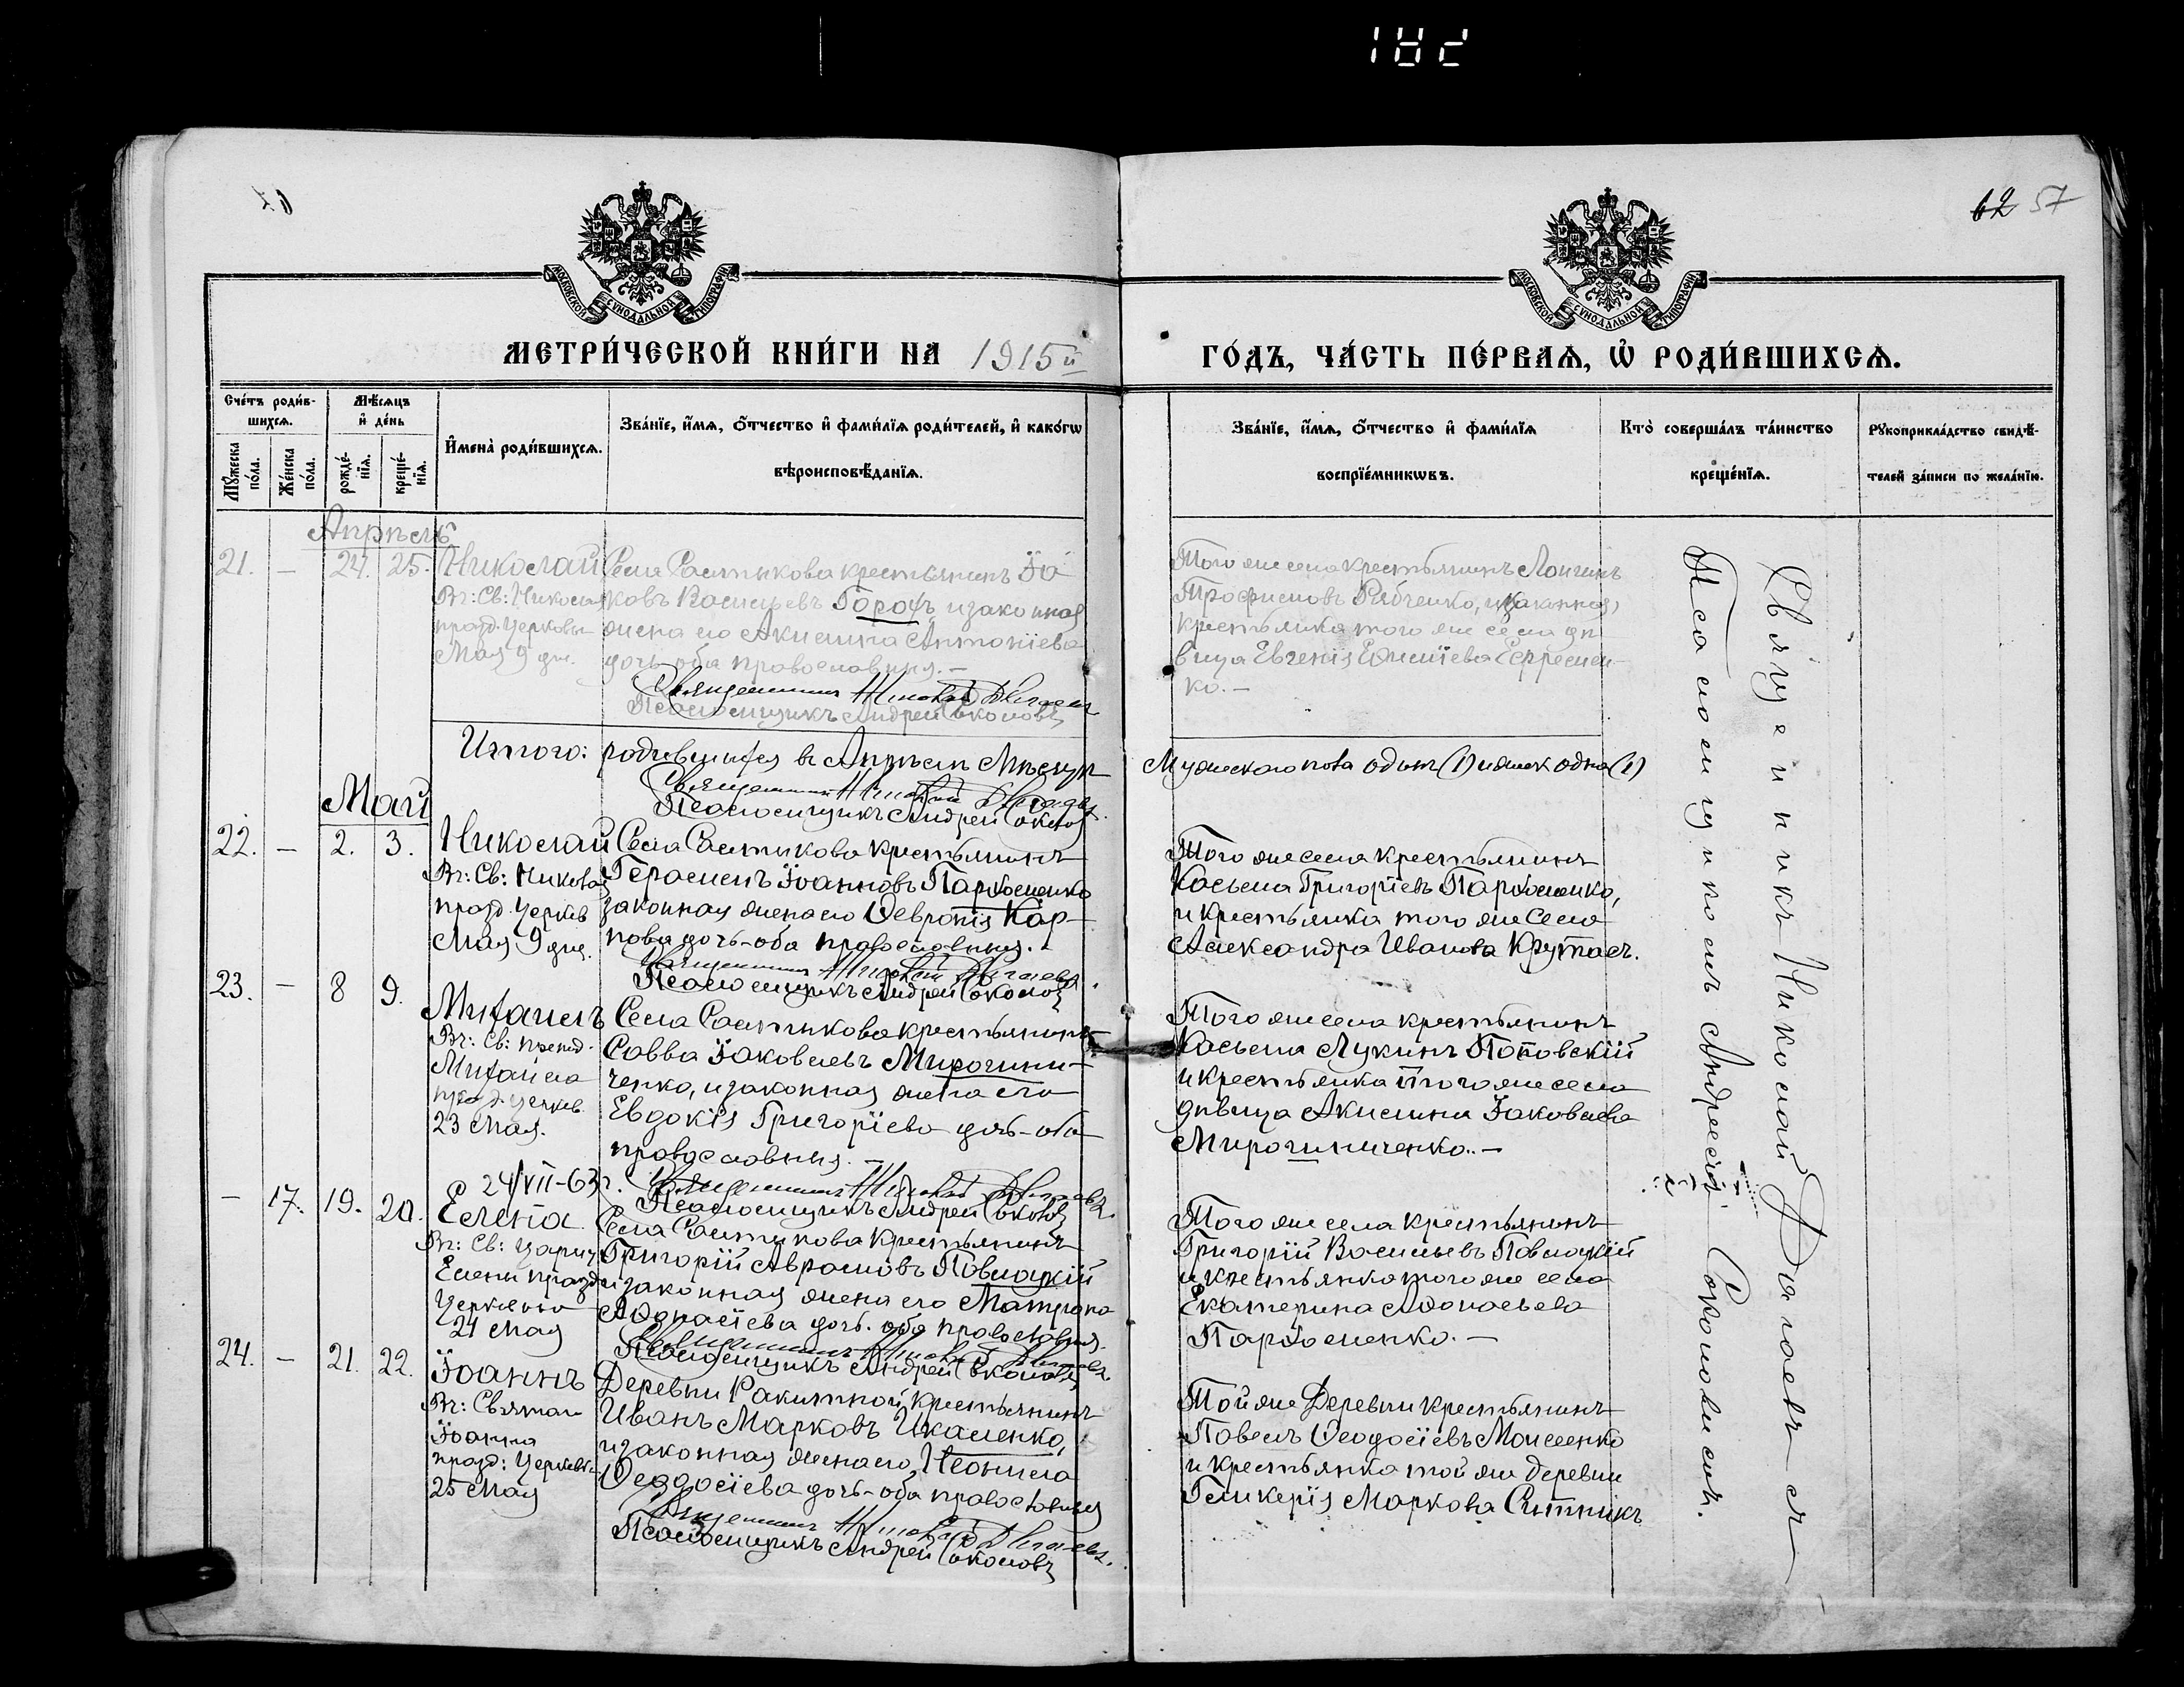 182
62 57
МОСКОВСКОЙ СѴНОДАЛЬНОЙ ТИПОГРАФІИ
МОСКОВСКОЙ СѴНОДАЛЬНОЙ ТИПОГРАФІИ
МЕТРИ́ЧЕСКОЙ КНИ́ГИ НА 1915й
ГО́ДЪ, ЧА́СТЬ ПЕ́РВАѦ, Ѽ РОДИ́ВШИХСѦ.
Сче́тъ роди́в-
шихсѧ.
Мѣ́сѧцъ
и҆ де́нь
Мꙋ́жеска
по́ла.
Же́нска
по́ла.
рожде́-
нїѧ.
креще́-
нїѧ.
И҆мена̀ роди́вшихсѧ.
Зва́нїе, и҆́мѧ, ѻ҆́тчество и҆ фами́лїѧ роди́телей, и҆ како́гѡ
вѣроисповѣ́данїѧ.
Зва́нїе, и҆́мѧ, ѻ҆́тчество и҆ фами́лїѧ
воспрїе́мникѡвъ.
Кто̀ соверша́лъ та́инство
креще́нїѧ.
Рꙋкоприкла́дство свидѣ́-
телей за́писи по жела́нїю.
Апрѣль
21. — 24. 25. Николай
Въ: Св: Николая
празд. Церковью
Мая 9 дня.
Села крестьянинъ Іа-
ковъ Васильевъ Горохъ и законная
жена его Акилина Антоніева
дочь оба православныя.—
Священникъ Николай
Псаломщикъ Андрей Соколовъ
Того же села крестьянинъ Лонгинъ
Трофимовъ Рябченко, и
крестьянка того же села дѣ-
вица Евгенія
ко.—
Итого: родившихся въ Апрѣлѣ Мѣсяцѣ
Мужескаго пола одинъ (1) и женск. одна (1)
Священникъ Николай
Псаломщикъ Андрей Соколовъ
Май
22. — 2. 3. Николай
Въ: Св: Николая
празд. Церков
Мая 9 дня.
Села крестьянинъ
Герасимъ Іоанновъ Пархоменко
законная жена его Ѳевронія Кар-
пова дочь-оба православныя.
Священникъ Николай
Псаломщикъ Андрей Соколовъ
Того же села крестьянинъ
Косьма Григоріевъ Пархоменко,
и крестьянка того же села
Александра Иванова
23. — 8 9. Михаилъ
Въ: Св:
Михаила
празд. Церков.
23 Мая.
Села крестьянинъ
Савва Іаковлевъ Мирошни-
ченко, и законная жена его
Евдокія Григоріева дочь-оба
православныя.—
Священникъ Николай
Псаломщикъ Андрей Соколовъ
Того же села крестьянинъ
Косьма Лукинъ Поповскій
и крестьянка того же села
дѣвица Акилина Іаковлева
Мирошниченко.—
24/VII-63г.
— 17. 19. 20. Елена
Въ: Св: Цариц
Елены празд.
Церковью
21 Мая
Села крестьянинъ
Григорій Аврамовъ Повлоцкій
и законная жена его Матрона
Аѳонасіева дочь. оба православныя.
Священникъ Николай
Псаломщикъ Андрей Соколовъ
Того же села крестьянинъ
Григорій Васильевъ Повлоцкій
и крестьянка того же села
Екатерина Аѳонасьева
Пархоменко.—
24. — 21. 22. Іоаннъ
Въ: Святаго
Іоанна
празд: Церков
25 Мая
Деревни Ракитной крестьянинъ
Иванъ Марковъ
и законная жена его,
Ѳеодосіева дочь-оба православныя
Священникъ Николай
Псаломщикъ Андрей Соколовъ
Той же Деревни крестьянинъ
Павелъ Ѳеодосіевъ Моисеенко
и крестьянка той же деревни
Гликерія Маркова Сытникъ
Священникъ Николай
Псаломщикомъ Андреемъ Соколовымъ.